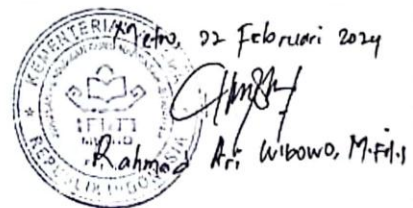 Metro, 22 Februari 2024
KEMENTERIAN
REPUBLIK INDONESIA
Rahmad Ari Wibowo, M.Fil.I